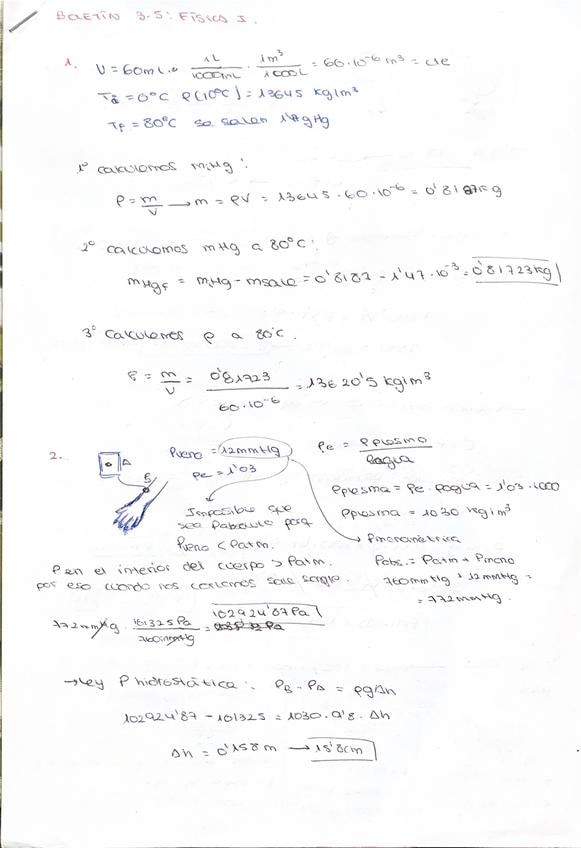 BOLETÍN 3.5: FÍSICA I.
1. V = 60mL · 1L/1000mL · 1m³/1000L = 60·10⁻⁶ m³ = cte
T₀ = 0°C ρ(10°C) = 13645 kg/m³
Tf = 80°C se salen 1'47g Hg
1º calculamos mHg:
ρ = m/V → m = ρV = 13645 · 60·10⁻⁶ = 0'8187kg
2º calculamos mHg a 80°C:
mHgf = mHg - msale = 0'8187 - 1'47·10⁻³ = 0'81723kg
3º Calculamos ρ a 80°C.
ρ = m/V = 0'81723/60·10⁻⁶ = 13620'5 kg/m³
2. A B Pveno = 12mmHg
ρe = 1'03
ρe = ρplasma/ρagua
Imposible que sea Pabsoluta porq
Pveno < Patm.
ρplasma = ρe · ρagua = 1'03 · 1000
ρplasma = 1030 kg/m³
Pmanométrica
P en el interior del cuerpo > Patm.
por eso cuando nos cortamos sale sangre.
Pabs. = Patm + Pmano
760mmHg + 12mmHg =
= 772mmHg.
772mmHg · 101325Pa/760mmHg = 102924'87Pa
→ Ley P hidrostática: PB - PA = ρgΔh
102924'87 - 101325 = 1030 · 9'8 · Δh
Δh = 0'158m → 15'8cm